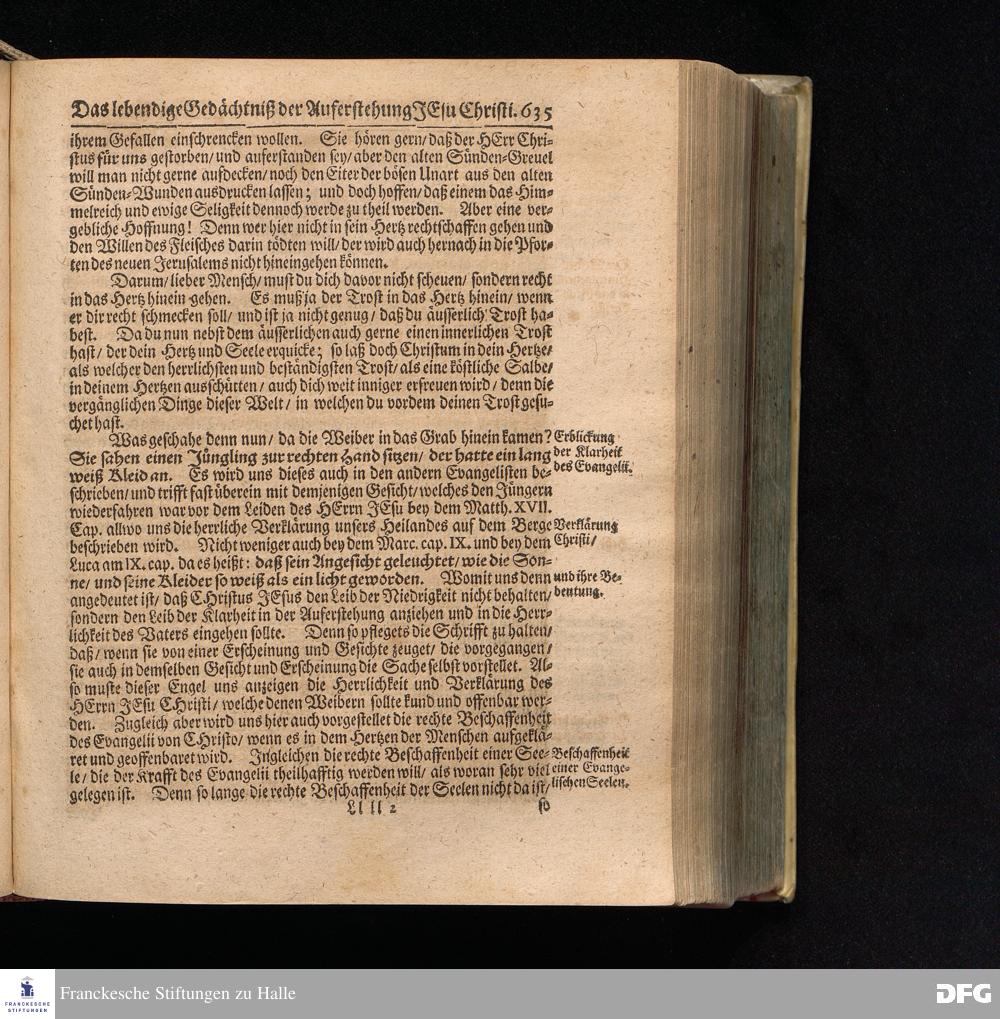 Das lebendige Gedächtniß der Auferstehung JEsu Christi. 635
ihrem Gefallen einschrencken wollen. Sie hören gern/ daß der HErr Chri-
stus für uns gestorben/ und auferstanden sey/ aber den alten Sünden-Greuel
will man nicht gerne aufdecken/ noch den Eiter der bösen Unart aus den alten
Sünden-Wunden ausdrucken lassen; und doch hoffen/ daß einem das Him-
melreich und ewige Seligkeit dennoch werde zu theil werden. Aber eine ver-
gebliche Hoffnung! Denn wer hier nicht in sein Hertz rechtschaffen gehen und
den Willen des Fleisches darin tödten will/ der wird auch hernach in die Pfor-
ten des neuen Jerusalems nicht hineingehen können.
Darum/ lieber Mensch/ must du dich davor nicht scheuen/ sondern recht
in das Hertz hinein gehen. Es muß ja der Trost in das Hertz hinein/ wenn
er dir recht schmecken soll/ und ist ja nicht genug/ daß du äusserlich Trost ha-
best. Da du nun nebst dem äusserlichen auch gerne einen innerlichen Trost
hast/ der dein Hertz und Seele erquicke; so laß doch Christum in dein Hertze/
als welcher den herrlichsten und beständigsten Trost/ als eine köstliche Salbe/
in deinem Hertzen ausschütten/ auch dich weit inniger erfreuen wird/ denn die
vergänglichen Dinge dieser Welt/ in welchen du vordem deinen Trost gesu-
chet hast.
Was geschahe denn nun/ da die Weiber in das Grab hinein kamen?
Sie sahen einen Jüngling zur rechten Hand sitzen/ der hatte ein lang
weiß Kleid an. Es wird uns dieses auch in den andern Evangelisten be-
schrieben/ und trifft fast überein mit demjenigen Gesicht/ welches den Jüngern
wiederfahren war vor dem Leiden des HErrn JEsu bey dem Matth. XVII.
Cap. allwo uns die herrliche Verklärung unsers Heilandes auf dem Berge
beschrieben wird. Nicht weniger auch bey dem Marc. cap. IX. und bey dem
Luca am IX. cap. da es heißt: daß sein Angesicht geleuchtet/ wie die Son-
ne/ und seine Kleider so weiß als ein licht geworden. Womit uns denn
angedeutet ist/ daß CHristus JEsus den Leib der Niedrigkeit nicht behalten/
sondern den Leib der Klarheit in der Auferstehung anziehen und in die Herr-
lichkeit des Vaters eingehen sollte. Denn so pflegets die Schrifft zu halten/
daß/ wenn sie von einer Erscheinung und Gesichte zeuget/ die vorgegangen/
sie auch in demselben Gesicht und Erscheinung die Sache selbst vorstellet. Al-
so muste dieser Engel uns anzeigen die Herrlichkeit und Verklärung des
HErrn JEsu CHristi/ welche denen Weibern sollte kund und offenbar wer-
den. Zugleich aber wird uns hier auch vorgestellet die rechte Beschaffenheit
des Evangelii von CHristo/ wenn es in dem Hertzen der Menschen aufgeklä-
ret und geoffenbaret wird. Ingleichen die rechte Beschaffenheit einer See-
le/ die der Krafft des Evangelii theilhafftig werden will/ als woran sehr viel
gelegen ist. Denn so lange die rechte Beschaffenheit der Seelen nicht da ist/
Ll ll 2
so
Erblickung
der Klarheit
des Evangelii.
Verklärung
Christi/
und ihre Be-
deutung.
Beschaffenheit
einer Evange-
lischen Seelen.
FRANCKESCHE
STIFTUNGEN
Franckesche Stiftungen zu Halle
DFG